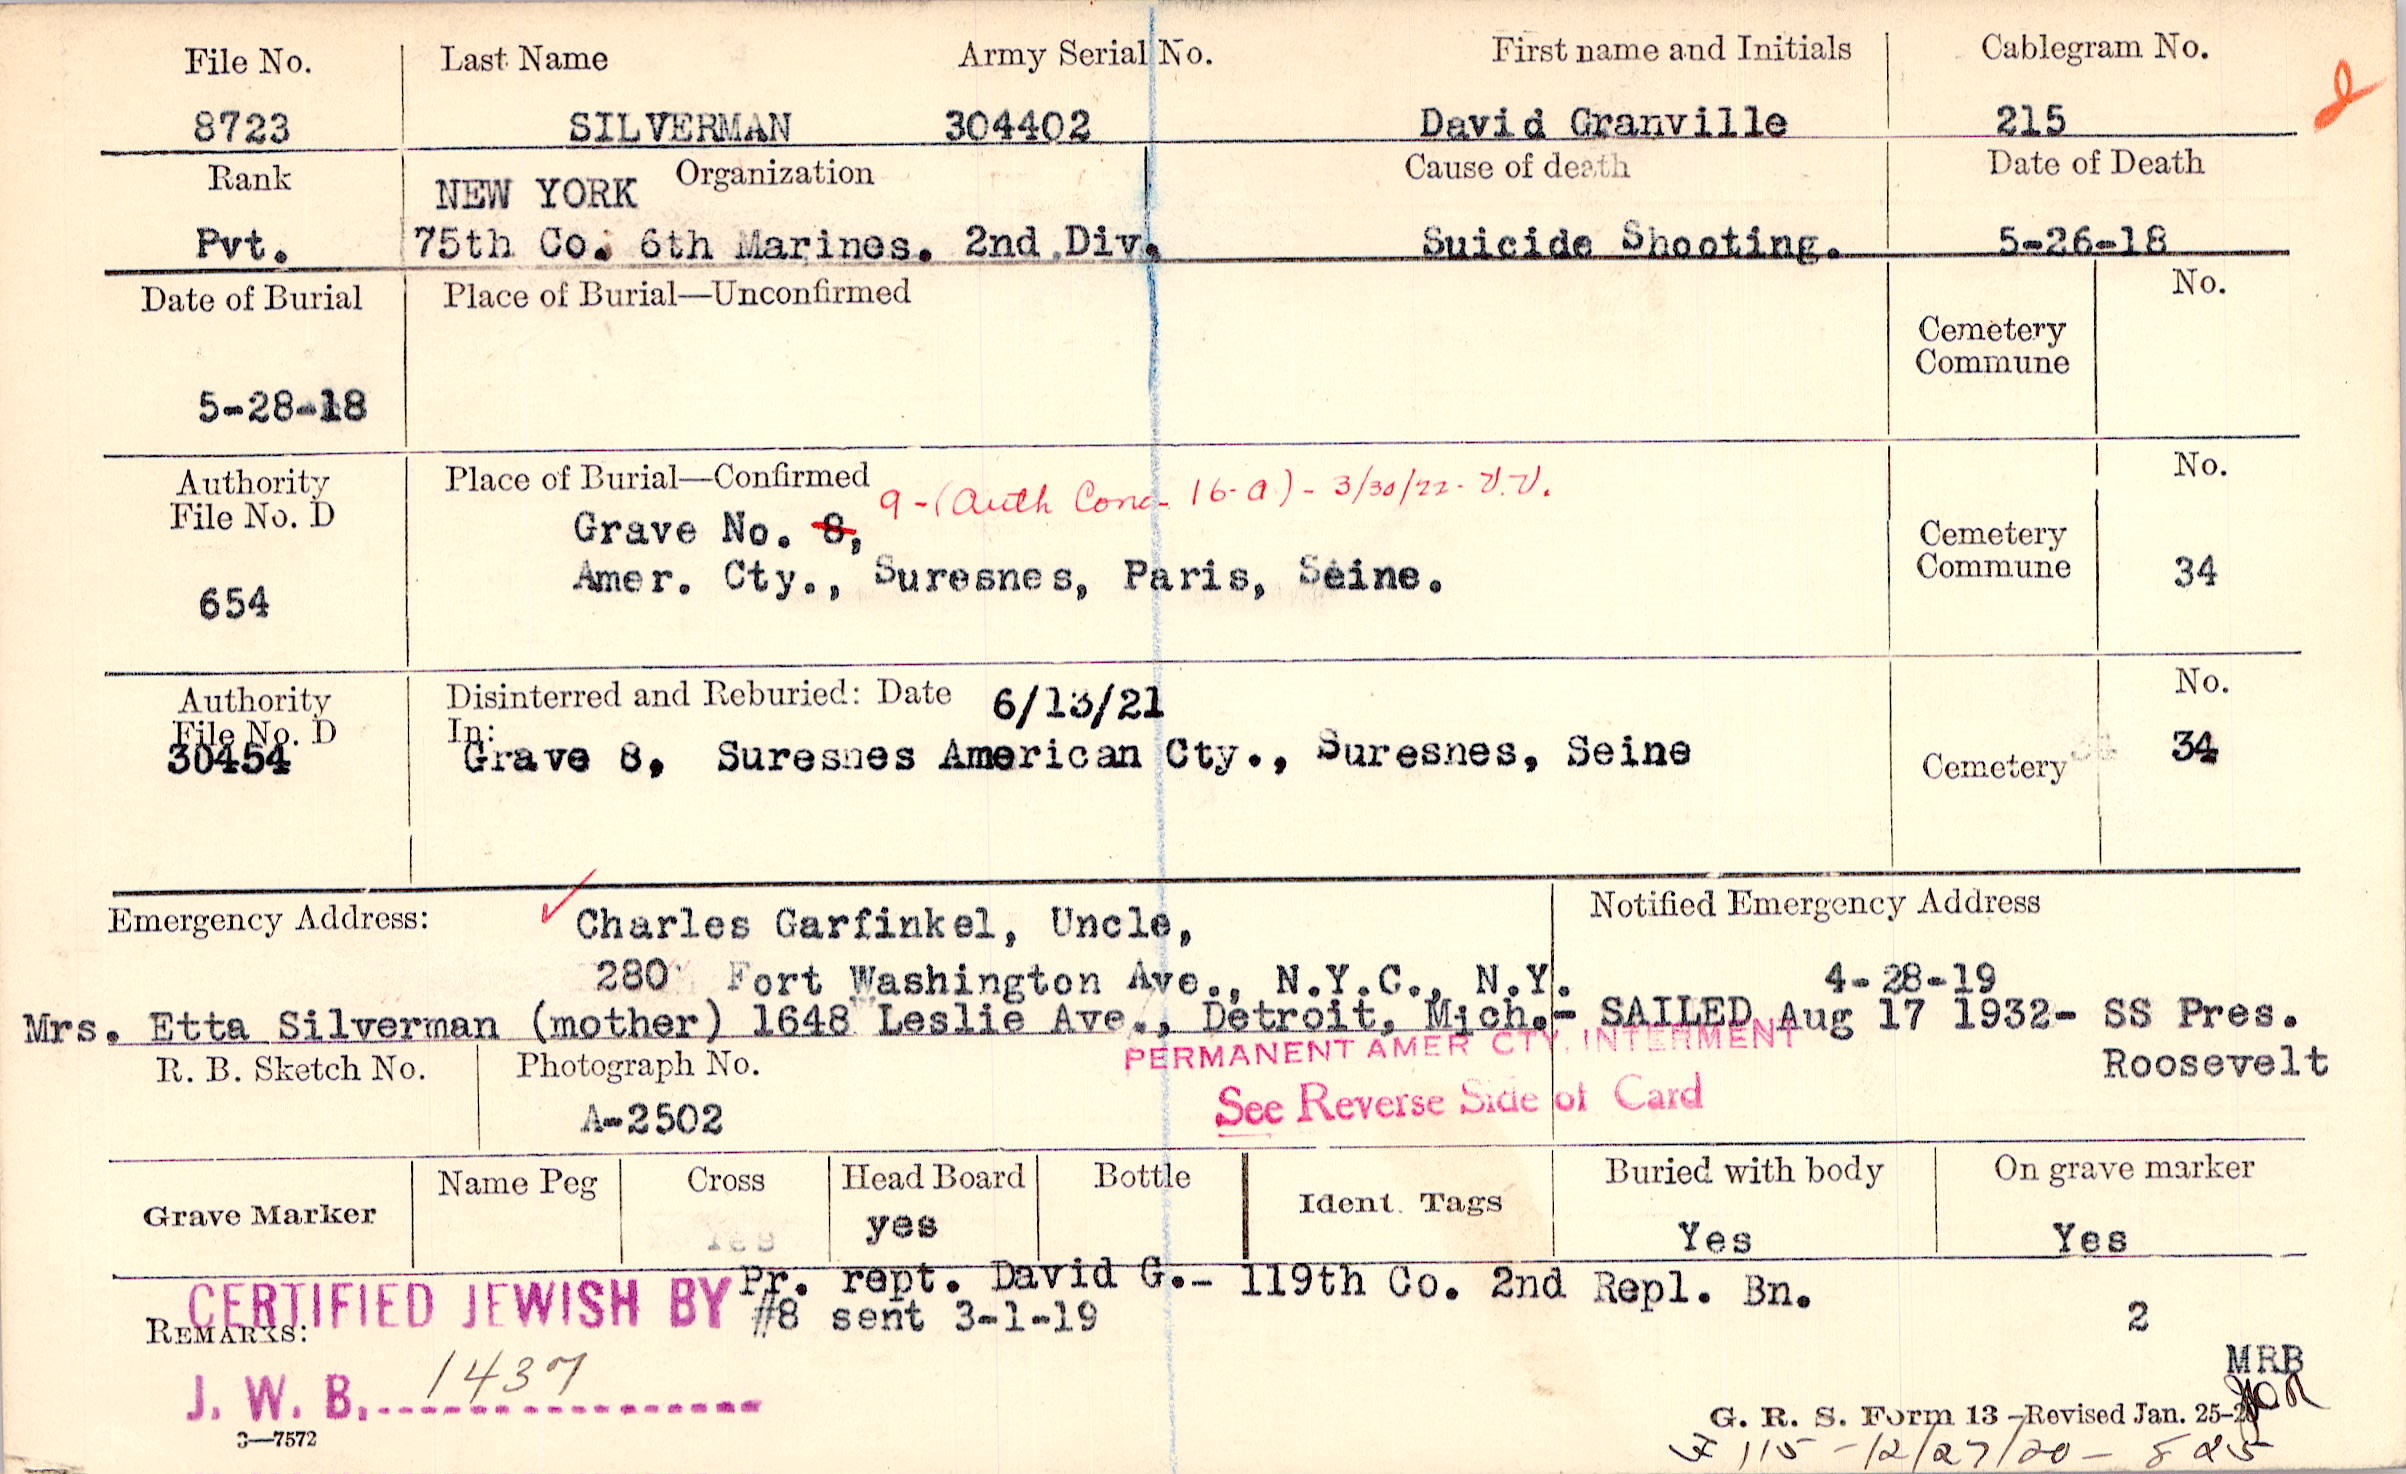 File No. Last Name Army Serial No. First name and Initials Cablegram No.
8723 SILVERMAN 304402 David Granville 215
Rank NEW YORK Organization Cause of death Date of Death
Pvt. 75th Co. 6th Marines. 2nd Div. Suicide Shooting. 5-26-18
Date of Burial Place of Burial—Unconfirmed No.
Cemetery
Commune
5-28-18
Authority Place of Burial—Confirmed No.
9-(Auth Conc- 16-a)- 3/30/22- V.V.
File No. D Grave No. 8, Cemetery
654 Amer. Cty., Suresnes, Paris, Seine. Commune 34
Authority Disinterred and Reburied: Date 6/13/21 No.
File No. D In:
30454 Grave 8, Suresnes American Cty., Suresnes, Seine Cemetery 34 34
Emergency Address: Charles Garfinkel, Uncle, Notified Emergency Address
280 Fort Washington Ave., N.Y.C., N.Y. 4-28-19
Mrs. Etta Silverman (mother) 1648 Leslie Ave., Detroit, Mich.- SAILED Aug 17 1932- SS Pres.
Roosevelt
PERMANENT AMER CTY. INTERMENT
R. B. Sketch No. Photograph No.
See Reverse Side of Card
A-2502
Grave Marker Name Peg Cross Head Board Bottle Ident. Tags Buried with body On grave marker
Yes yes Yes Yes
CERTIFIED JEWISH BY Pr. rept. David G.- 119th Co. 2nd Repl. Bn.
REMARKS: #8 sent 3-1-19 2
MRB
J. W. B. 1437
G. R. S. Form 13 —Revised Jan. 25-
3—7572
115 - 12/27/20 - 825